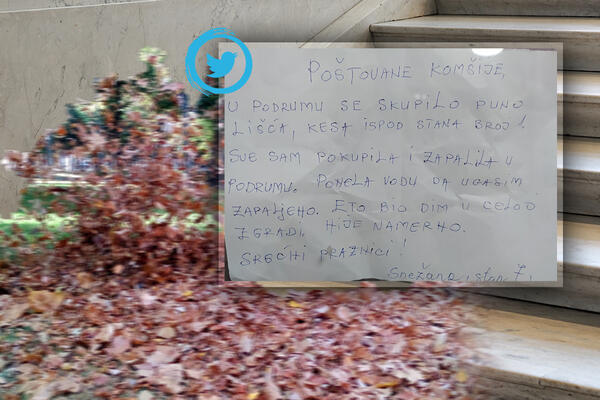 POŠTOVANE KOMŠIJE,
U PODRUMU SE SKUPILO PUNO
LIŠĆA, KESA ISPOD STANA BROJ 1.
SVE SAM POKUPILA I ZAPALILA U
PODRUMU. PONELA VODU DA UGASIM
ZAPALJENO. ETO BIO DIM U CELOJ
ZGRADI. NIJE NAMERNO.
SREĆNI PRAZNICI!
Snežana, stan 7.